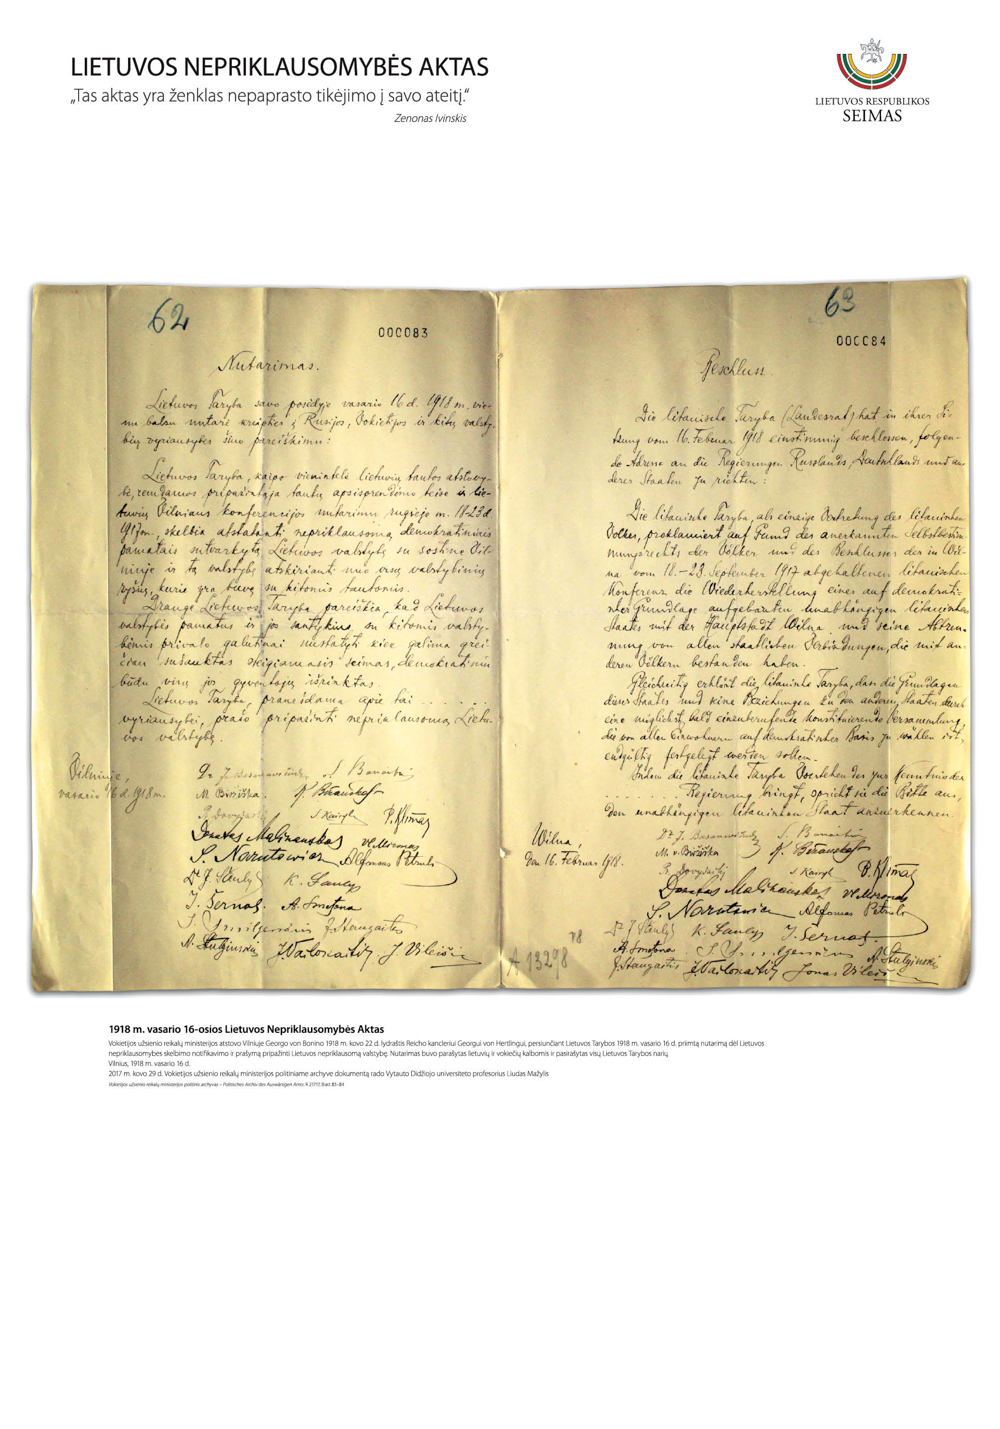 LIETUVOS NEPRIKLAUSOMYBĖS AKTAS
„Tas aktas yra ženklas nepaprasto tikėjimo į savo ateitį.“
Zenonas Ivinskis
LIETUVOS RESPUBLIKOS
SEIMAS
62
000083
Nutarimas.
Lietuvos Taryba savo posėdyje vasario 16 d. 1918 m. vie-
nu balsu nutarė kreiptis į Rusijos, Vokietijos ir kitų valsty-
bių vyriausybes šiuo pareiškimu:
Lietuvos Taryba, kaipo vienintelė lietuvių tautos atstovy-
bė, remdamos pripažintąja tautų apsisprendimo teise ir lie-
tuvių Vilniaus konferencijos nutarimu rugsėjo m. 18-23 d.
1917 m., skelbia atstatanti nepriklausomą demokratiniais
pamatais sutvarkytą Lietuvos valstybę su sostine Vil-
niuje ir tą valstybę atskirianti nuo visų valstybinių
ryšių, kurie yra buvę su kitomis tautomis.
Drauge Lietuvos Taryba pareiškia, kad Lietuvos
valstybės pamatus ir jos santykius su kitomis valsty-
bėmis privalo galutinai nustatyti kiek galima grei-
čiau sušauktas steigiamasis seimas, demokratiniu
būdu visų jos gyventojų išrinktas.
Lietuvos Taryba, pranešdama apie tai . . . . . .
vyriausybei, prašo pripažinti nepriklausomą Lietu-
vos valstybę.
Vilniuje,
vasario 16 d. 1918 m.
Dr. J. Basanavičius S. Banaitis
M. Biržiška K. Bizauskas
P. Dovydaitis S. Kairys P. Klimas
Donatas Malinauskas Vl. Mironas
S. Narutowicz Alfonsas Petrulis
Dr J. Šaulys K. Šaulys
J. Šernas A. Smetona
J. Smilgevičius J. Staugaitis
A. Stulginskis J. Vailokaitis J. Vileišis
63
000084
Beschluss.
Die litauische Taryba (Landesrat) hat in ihrer Sit-
zung vom 16. Februar 1918 einstimmig beschlossen, folgen-
de Adresse an die Regierungen Russlands, Deutschlands und an-
derer Staaten zu richten:
Die litauische Taryba, als einzige Vertretung des litauischen
Volkes, proklamiert auf Grund des anerkannten Selbstbestim-
mungsrechts der Völker und des Beschlusses der in Wil-
na vom 18.–23. September 1917 abgehaltenen litauischen
Konferenz die Wiederherstellung eines auf demokrati-
scher Grundlage aufgebauten unabhängigen litauischen
Staates mit der Hauptstadt Wilna und seine Abtren-
nung von allen staatlichen Verbindungen, die mit an-
deren Völkern bestanden haben.
Gleichzeitig erklärt die litauische Taryba, dass die Grundlagen
dieses Staates und seine Beziehungen zu den anderen Staaten durch
eine möglichst bald einzuberufende konstituierende Versammlung,
die von allen Einwohnern auf demokratischer Basis zu wählen ist,
endgültig festgelegt werden sollen.
Indem die litauische Taryba Vorstehendes zur Kenntnis der
. . . . . . . Regierung bringt, spricht sie die Bitte aus,
den unabhängigen litauischen Staat anzuerkennen.
Wilna,
den 16. Februar 1918.
Dr J. Basanavičius S. Banaitis
M. v. Biržiška K. Bizauskas
P. Dovydaitis S. Kairys P. Klimas
Donatas Malinauskas Vl. Mironas
S. Narutowicz Alfonsas Petrulis
Dr J. Šaulys K. Šaulys J. Šernas
A. Smetona J. Smilgevičius A. Stulginskis
J. Staugaitis J. Vailokaitis Jonas Vileišis
A 13298
1918 m. vasario 16-osios Lietuvos Nepriklausomybės Aktas
Vokietijos užsienio reikalų ministerijos atstovo Vilniuje Georgo von Bonino 1918 m. kovo 22 d. lydraštis Reicho kancleriui Georgui von Hertlingui, persiunčiant Lietuvos Tarybos 1918 m. vasario 16 d. priimtą nutarimą dėl Lietuvos
nepriklausomybės skelbimo notifikavimo ir prašymą pripažinti Lietuvos nepriklausomą valstybę. Nutarimas buvo parašytas lietuvių ir vokiečių kalbomis ir pasirašytas visų Lietuvos Tarybos narių
Vilnius, 1918 m. vasario 16 d.
2017 m. kovo 29 d. Vokietijos užsienio reikalų ministerijos politiniame archyve dokumentą rado Vytauto Didžiojo universiteto profesorius Liudas Mažylis
Vokietijos užsienio reikalų ministerijos politinis archyvas – Politisches Archiv des Auswärtigen Amts: R 21717, Blatt 83–84